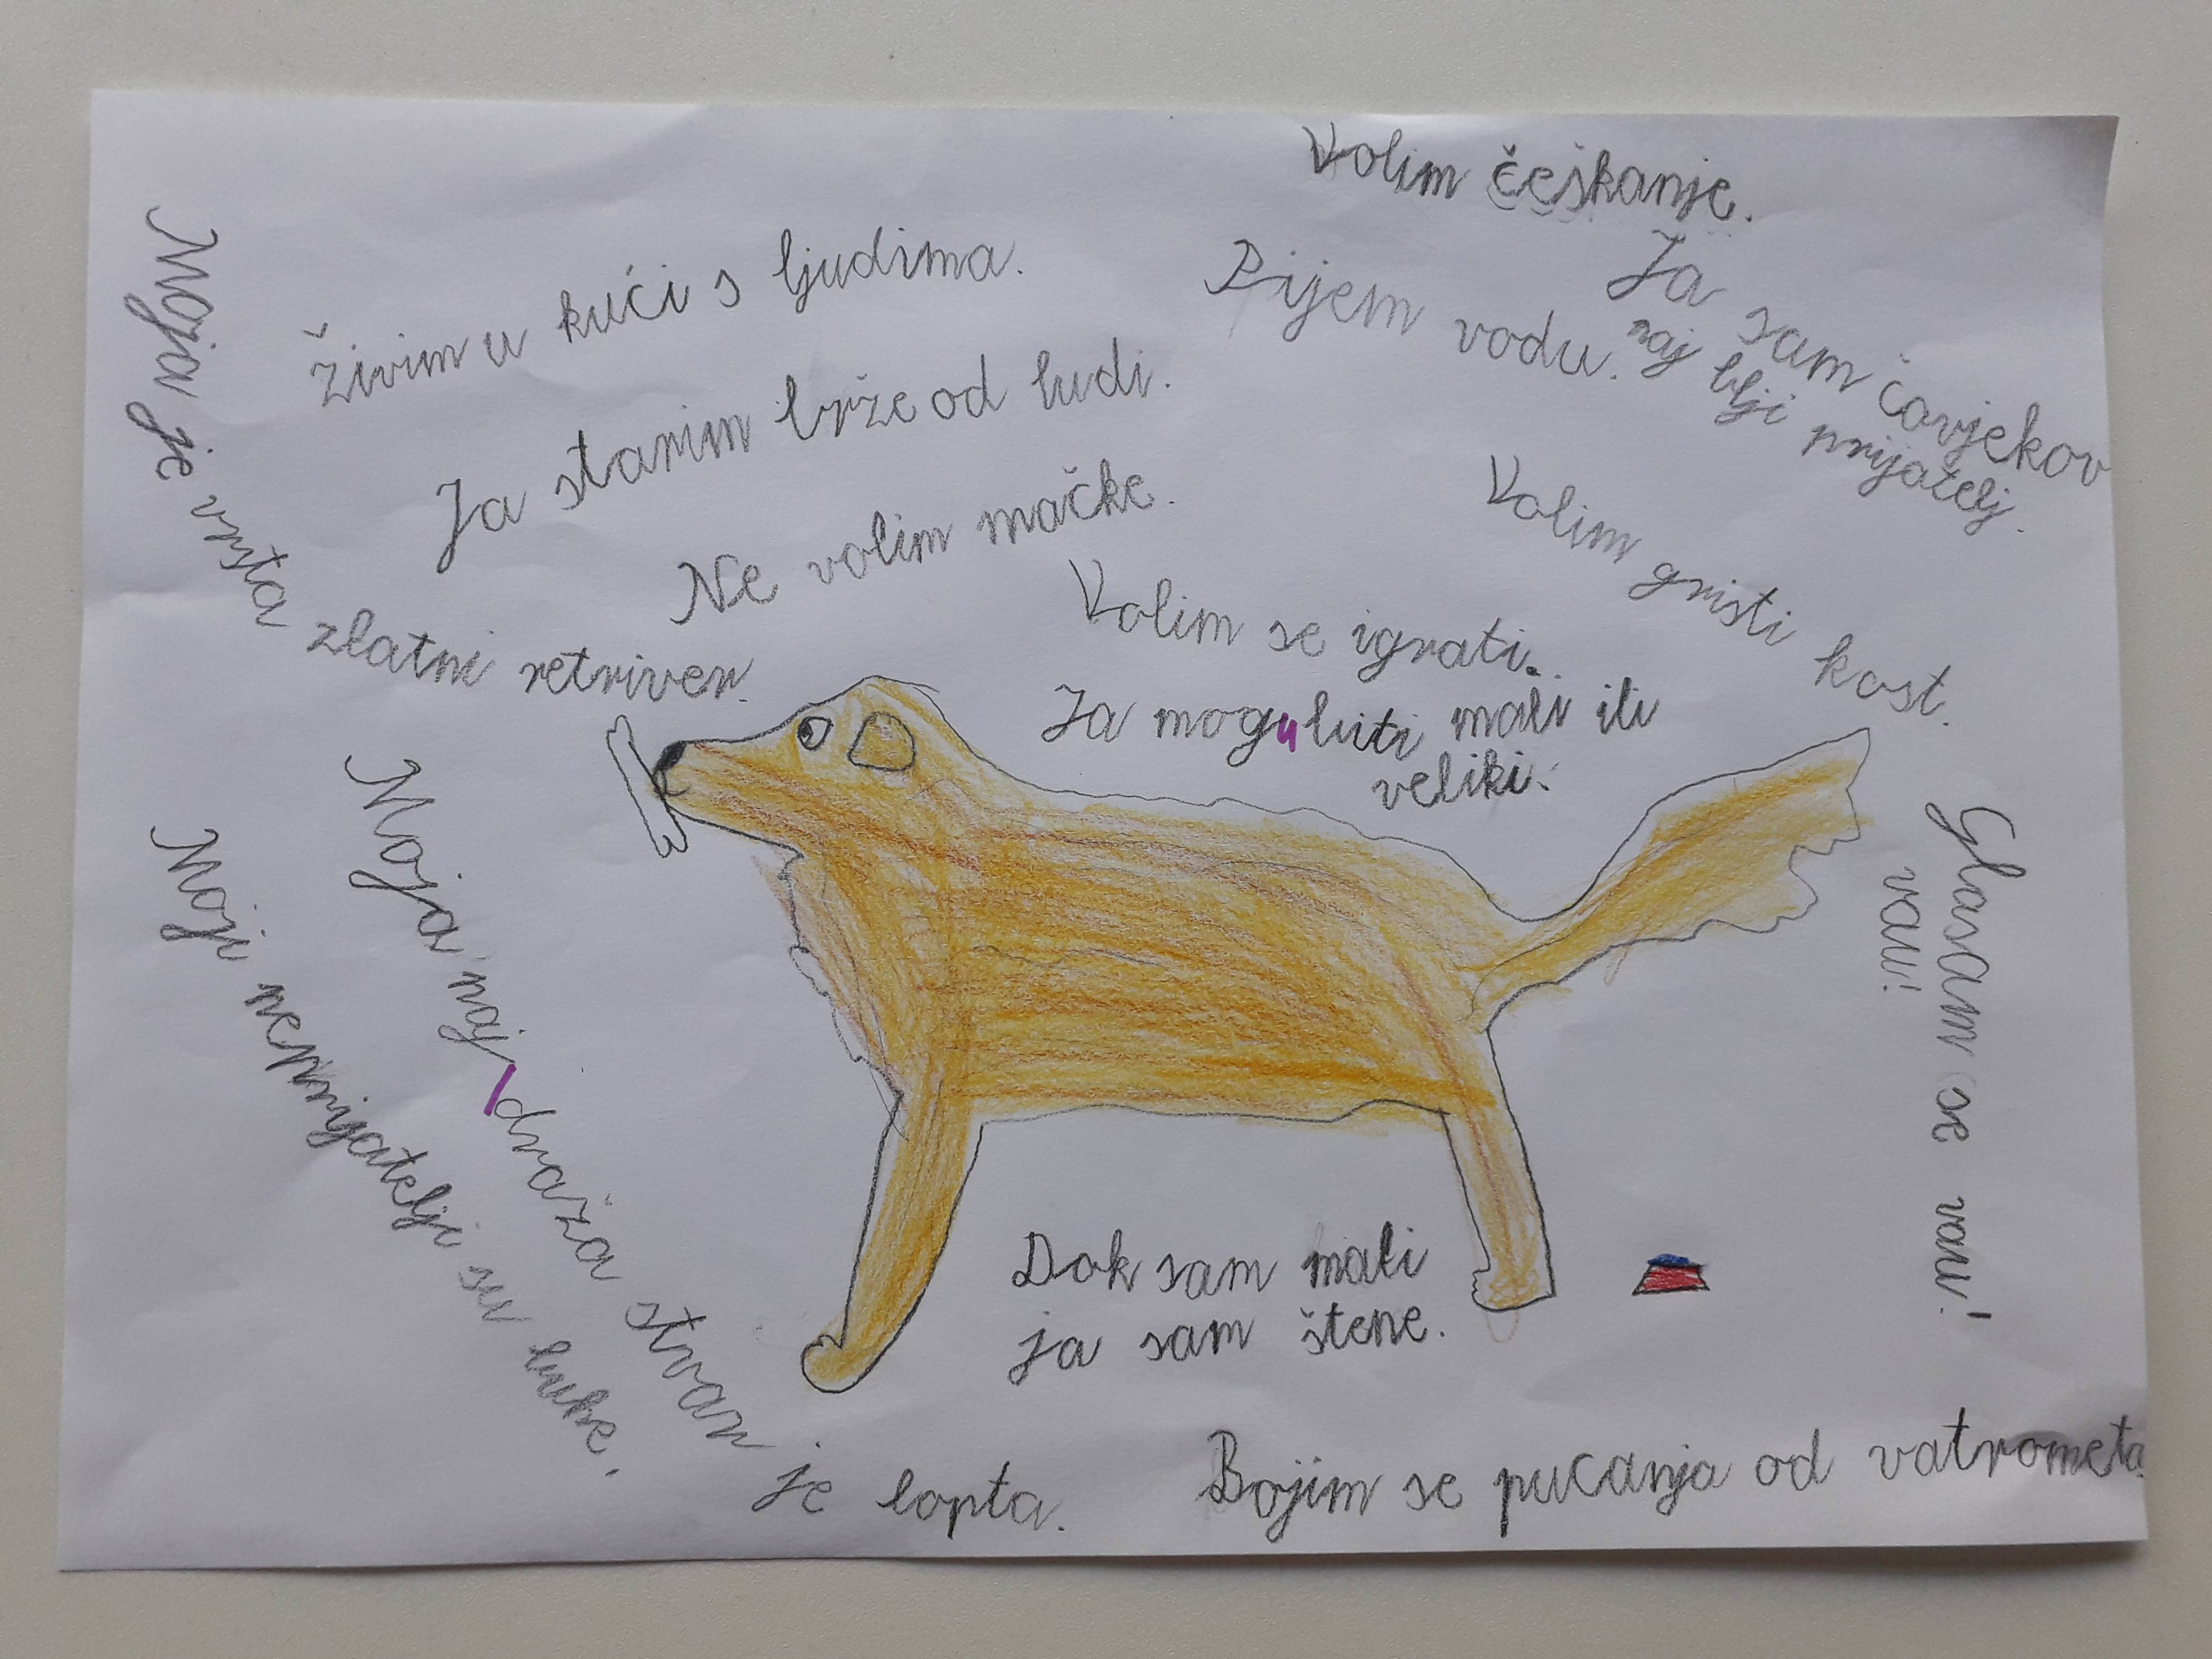 Volim češkanje.
Živim u kući s ljudima.
Pijem vodu.
Ja sam čovjekov
naj blji prijatelj.
Ja starim brže od ludi.
Ne volim mačke.
Volim gristi kost.
Moja je vrsta zlatni retriver.
Volim se igrati.
Ja mogu biti mali ili
veliki.
Glasam se vau!
vau!
Moja naj draža stvar je lopta.
Moji neprijatelji su buhe.
Dok sam mali
ja sam štene.
Bojim se pucanja od vatrometa